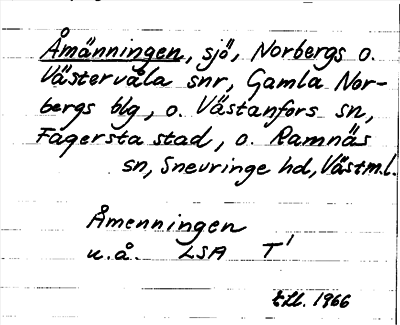 Åmänningen, sjö, Norbergs o.
Västervåla snr, Gamla Nor-
bergs blg, o. Västanfors sn,
Fagersta stad, o. Ramnäs
sn, Snevringe hd, Västm.l.
Åmenningen
u.å. LSA T'
till. 1966